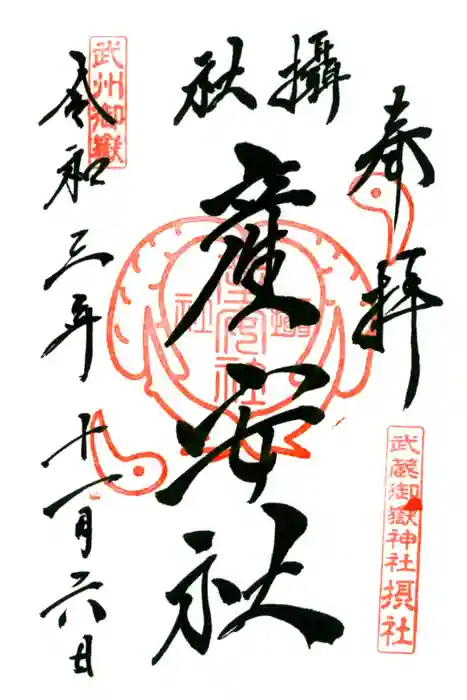 奉拝
攝社
産安社
令和三年十一月六日
武州御嶽
武蔵御嶽神社摂社
産安社
攝社